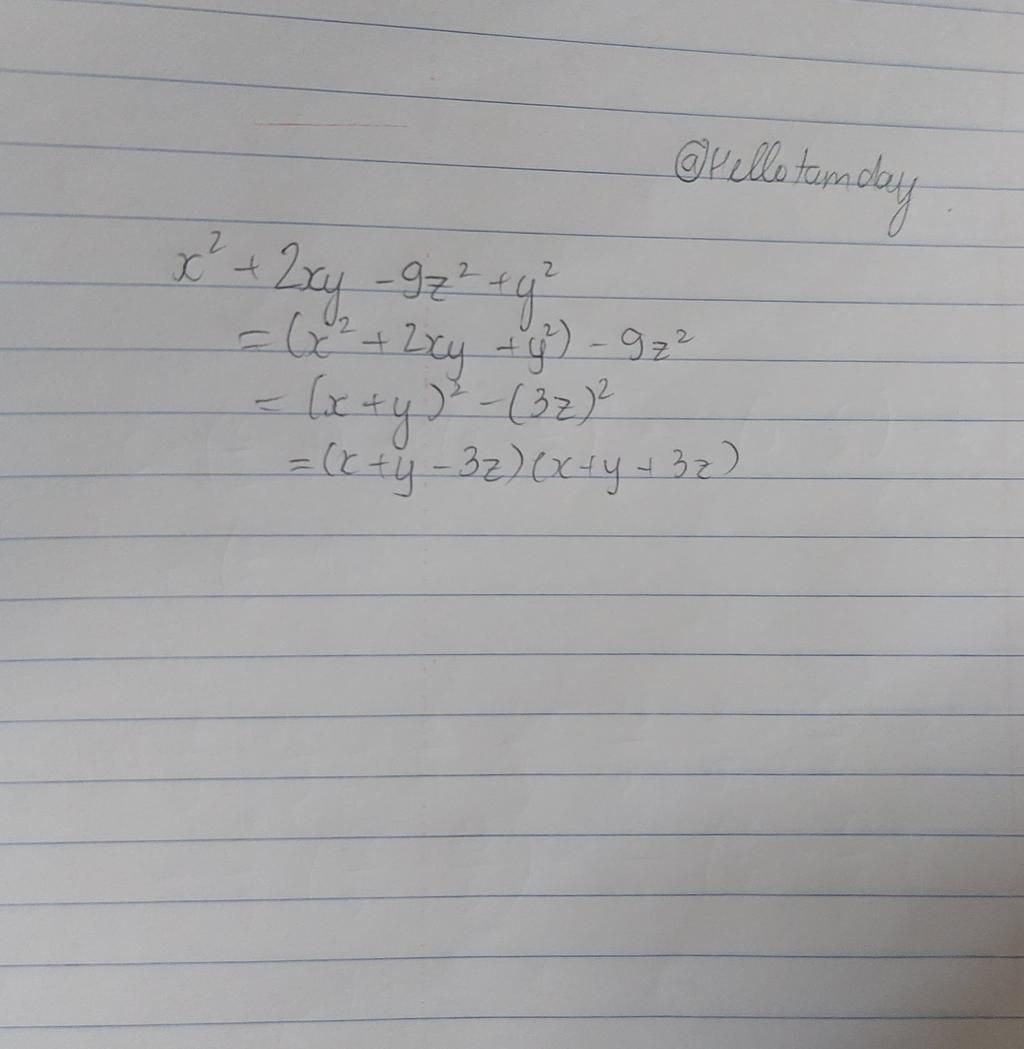 @Hellotamday
x² + 2xy - 9z² + y²
= (x² + 2xy + y²) - 9z²
= (x + y)² - (3z)²
= (x + y - 3z)(x + y + 3z)